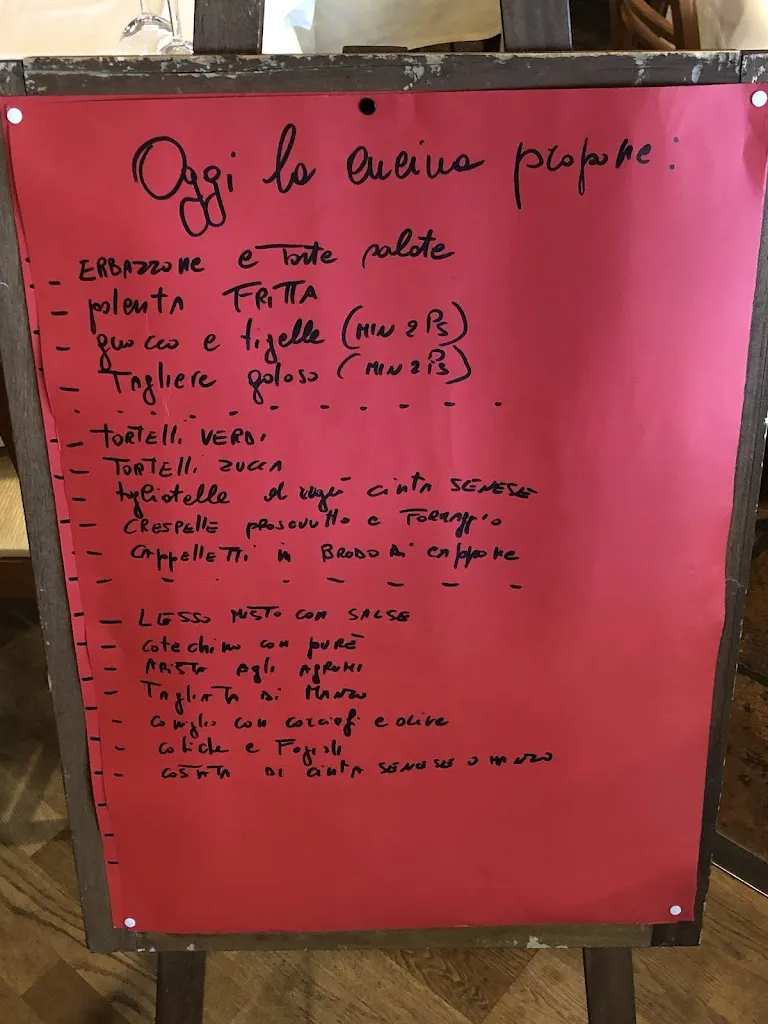 Oggi la cucina propone:
- ERBAZZONE e Torte salate
- polenta FRITTA
- gnocco e tigelle (MIN 2 PS)
- Tagliere goloso (MIN 2 PS)
- TORTELLI VERDI
- TORTELLI ZUCCA
- tagliatelle al ragù cinta SENESE
- CRESPELLE prosciutto e FORMAGGIO
- CAPPELLETTI in BRODO DI cappone
- LESSO MISTO CON SALSE
- cotechino con purè
- ARISTA agli AGRUMI
- TAgliATA DI MANZO
- coniglio con carciofi e olive
- cotiche e Fagioli
- COSTATA DI cinta SENESE O MANZO